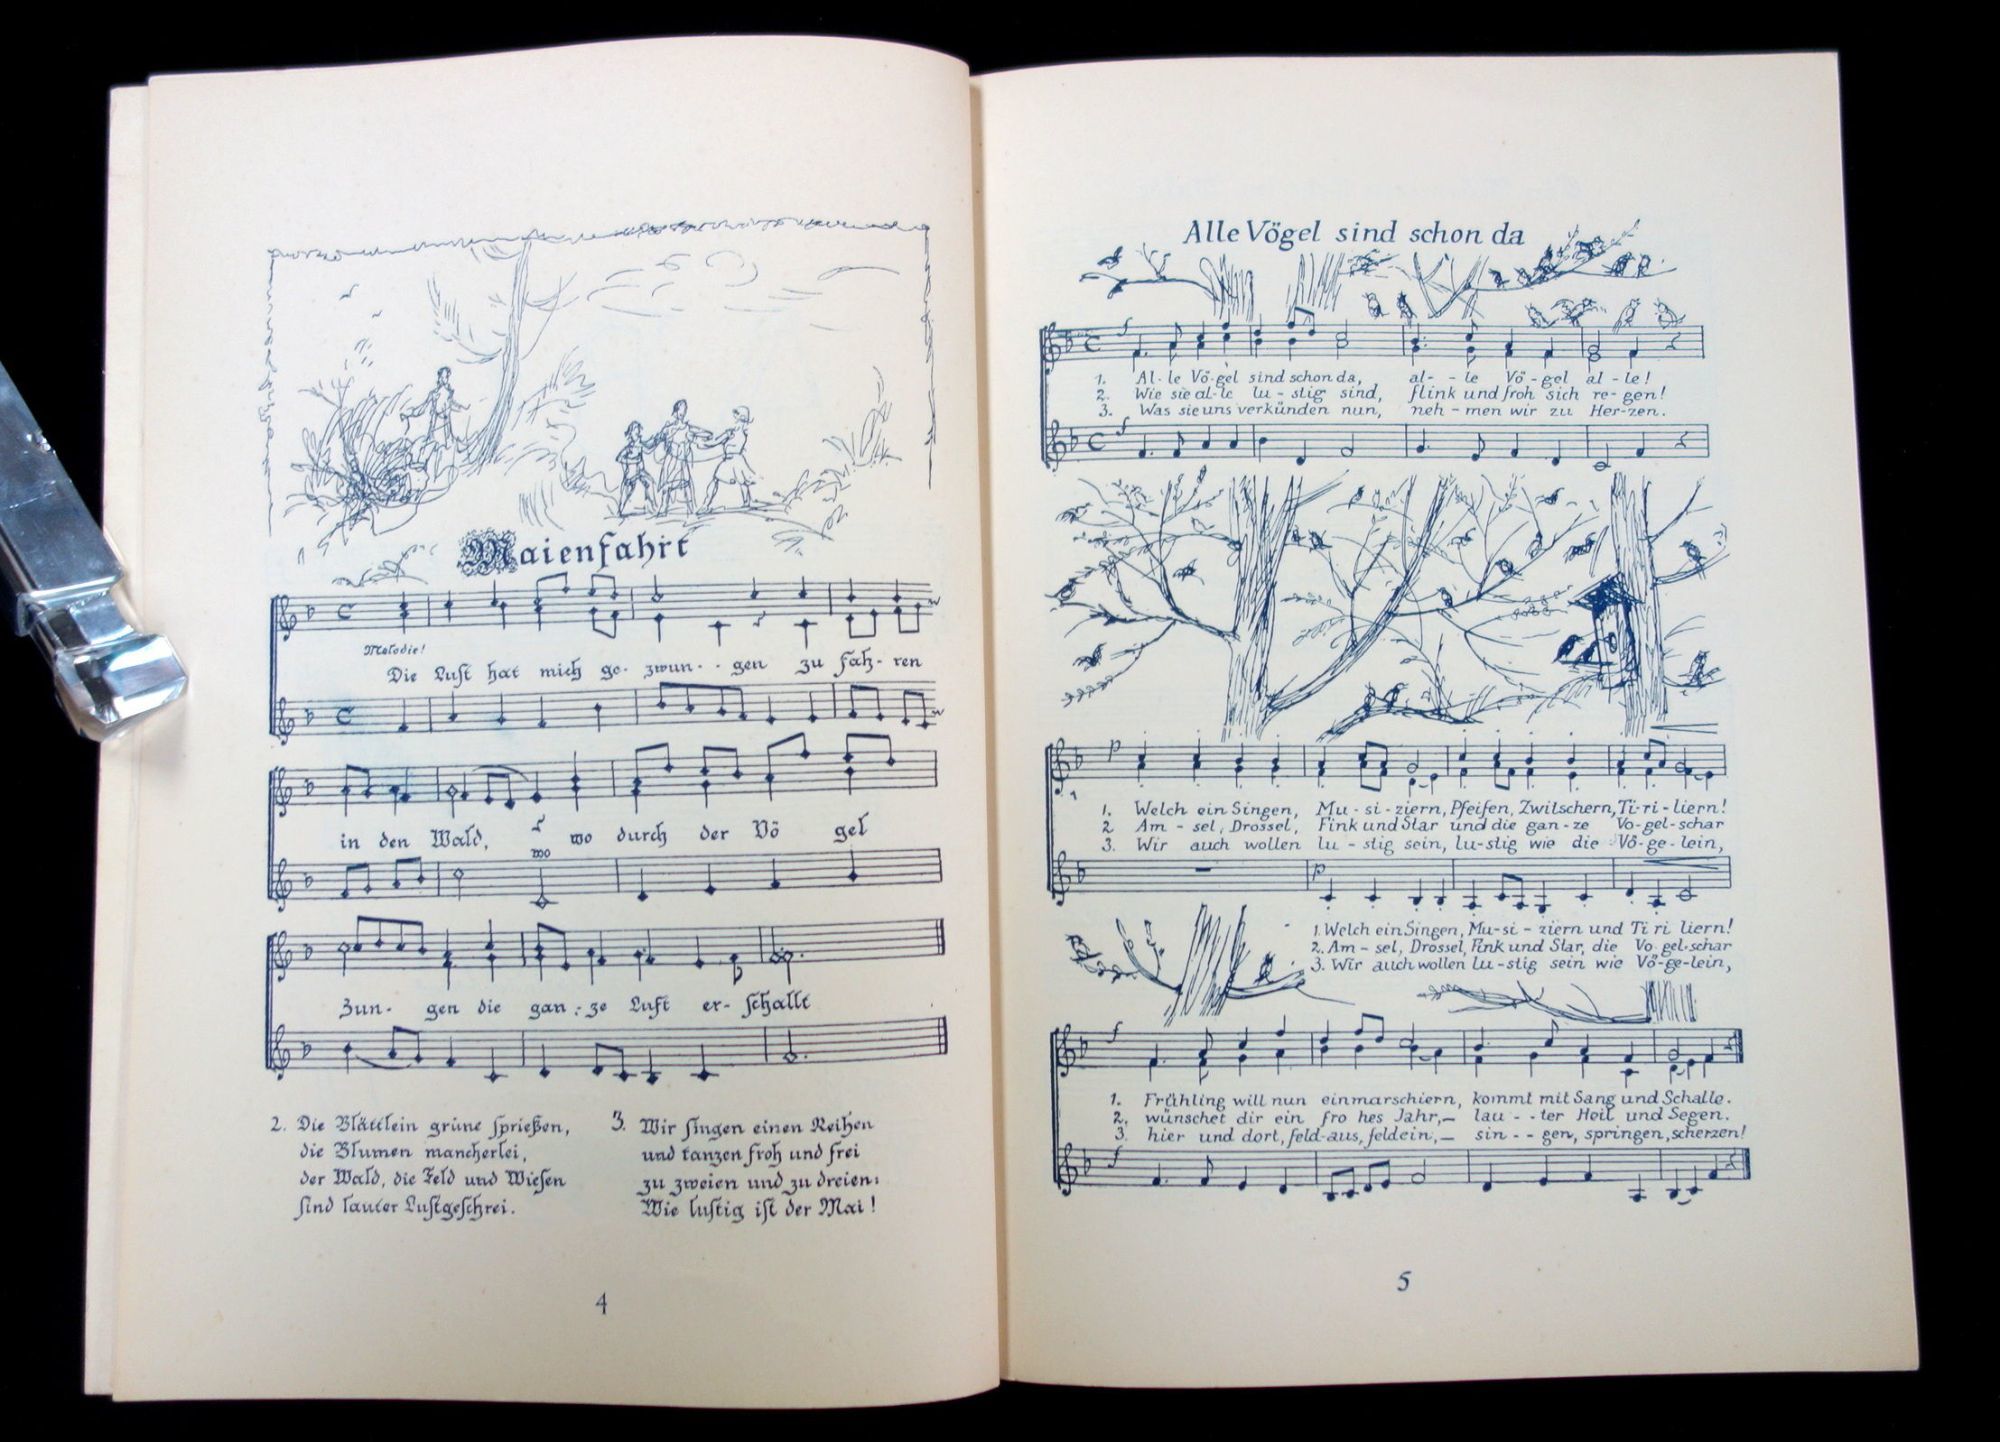 Maienfahrt
Melodie!
Die Lust hat mich ge- zwun- - gen zu fah- ren
in den Wald, wo durch der Vö gel
wo
Zun- gen die gan- ze Luft er- schallt
2. Die Blättlein grüne sprießen,
die Blumen mancherlei,
der Wald, die Feld und Wiesen
sind lauter Lustgeschrei.
3. Wir singen einen Reihen
und tanzen froh und frei
zu zweien und zu dreien:
Wie lustig ist der Mai!
4
Alle Vögel sind schon da
f
1. Al- le Vö-gel sind schon da, al- - le Vö - gel al - le!
2. Wie sie al-le lu - stig sind, flink und froh sich re- gen!
3. Was sie uns verkünden nun, neh - men wir zu Her-zen.
f
p
1. Welch ein Singen, Mu - si - ziern, Pfeifen, Zwitschern, Ti- ri - liern!
2 Am - sel, Drossel, Fink und Star und die gan - ze Vo - gel - schar
3. Wir auch wollen lu - stig sein, lu-stig wie die Vö-ge-lein,
p
1. Welch ein Singen, Mu-si - ziern und Ti ri liern!
2. Am - sel, Drossel, Fink und Star, die Vo gel-schar
3. Wir auch wollen lu-stig sein wie Vö-ge-lein,
f
1. Frühling will nun einmarschiern, kommt mit Sang und Schalle.
2. wünschet dir ein fro hes Jahr,— lau - - ter Heil und Segen.
3. hier und dort, feld-aus, feldein,— sin - - gen, springen, scherzen!
f
5